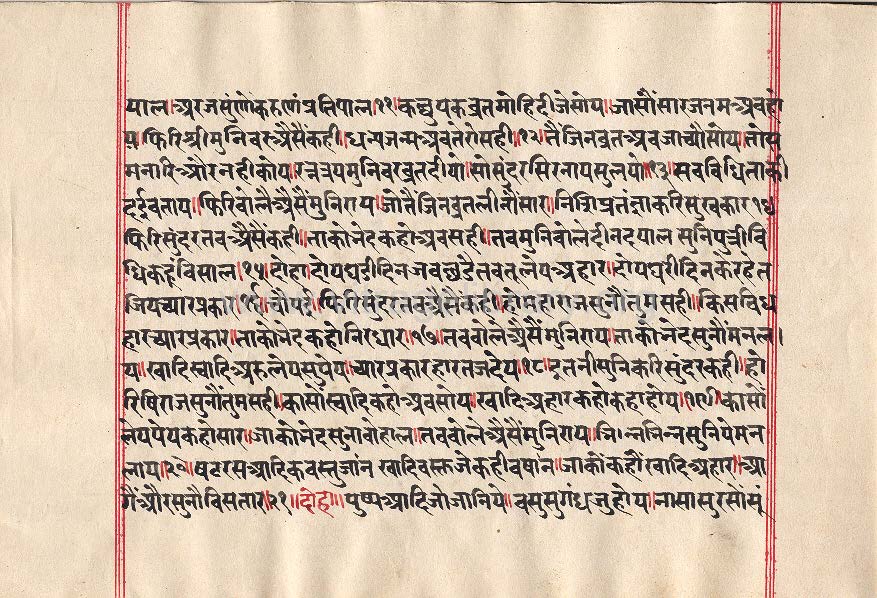 याल॥अरजसुंणोकरुणांप्रतिपाल॥११॥कछुयकव्रतमोहिदीजेसोय॥जासौंसारजनमअवहो
य॥फिरिश्रीमुनिवरअैसैंकही॥धन्यजन्मअवतेरोसही॥१२॥तैंजिनव्रतअवजाच्यौसोय॥तोस
मनारिऔरनहीकोय॥मुनिवरव्रतदीयो॥सोसुंदरसिरनायसुलयो॥१३॥सवविधिताकी
दईवताय॥फिरिवोलैअैसैंमुनिराय॥जोतैंजिनव्रतलीनौंसार॥करिसुखकार॥१४॥
फिरिसुंदरतवअैसैंकही॥ताकोभेदकहोअवसही॥तवमुनिवोलेदीनदयाल॥सुनिपुत्रीवि
धिकहूंविसाल॥१५॥दोहा॥दोयघडीदिनजवचढैतवतूलेयअहार॥दोयघरीदिनकेरहत
जियच्यारप्रकार॥१६॥चौपई॥फिरिसुंदरतवअैसैंकही॥होमहाराजसुनौंतुमसही॥किसविध
हारच्यारप्रकार॥ताकोभेदकहोनिरधार॥१७॥तववोलेअैसैंमुनिराय॥ताकोभेदसुनौंमनल।
य॥खादिस्वादिअरुलेयसुपेय॥च्यारप्रकारहारतजदेय॥१८॥इतनीसुनिकरिसुंदरकही॥हो
रिषिराजसुनौंतुमसही॥कासोंस्वादिकहोअवसोय॥खादिअहारकहोकहाहोय॥१९॥कासों
लेयपेयकहोसार॥जाकोभेदसुनावोहाल॥तववोलेअैसैंमुनिराय॥भिन्नभिन्नसुनियेमन
लाय॥२०॥षटरसआदिकवस्तुजांन॥खादिवस्तजेकहीवषांन॥जाकोंकहौंखादिअहार॥आ
गैंऔरसुनौविसतार॥२१॥दोहा॥पुष्पआदिजोजानिये॥वसुसुगंधजुहोय॥नासासुरसोंसूं